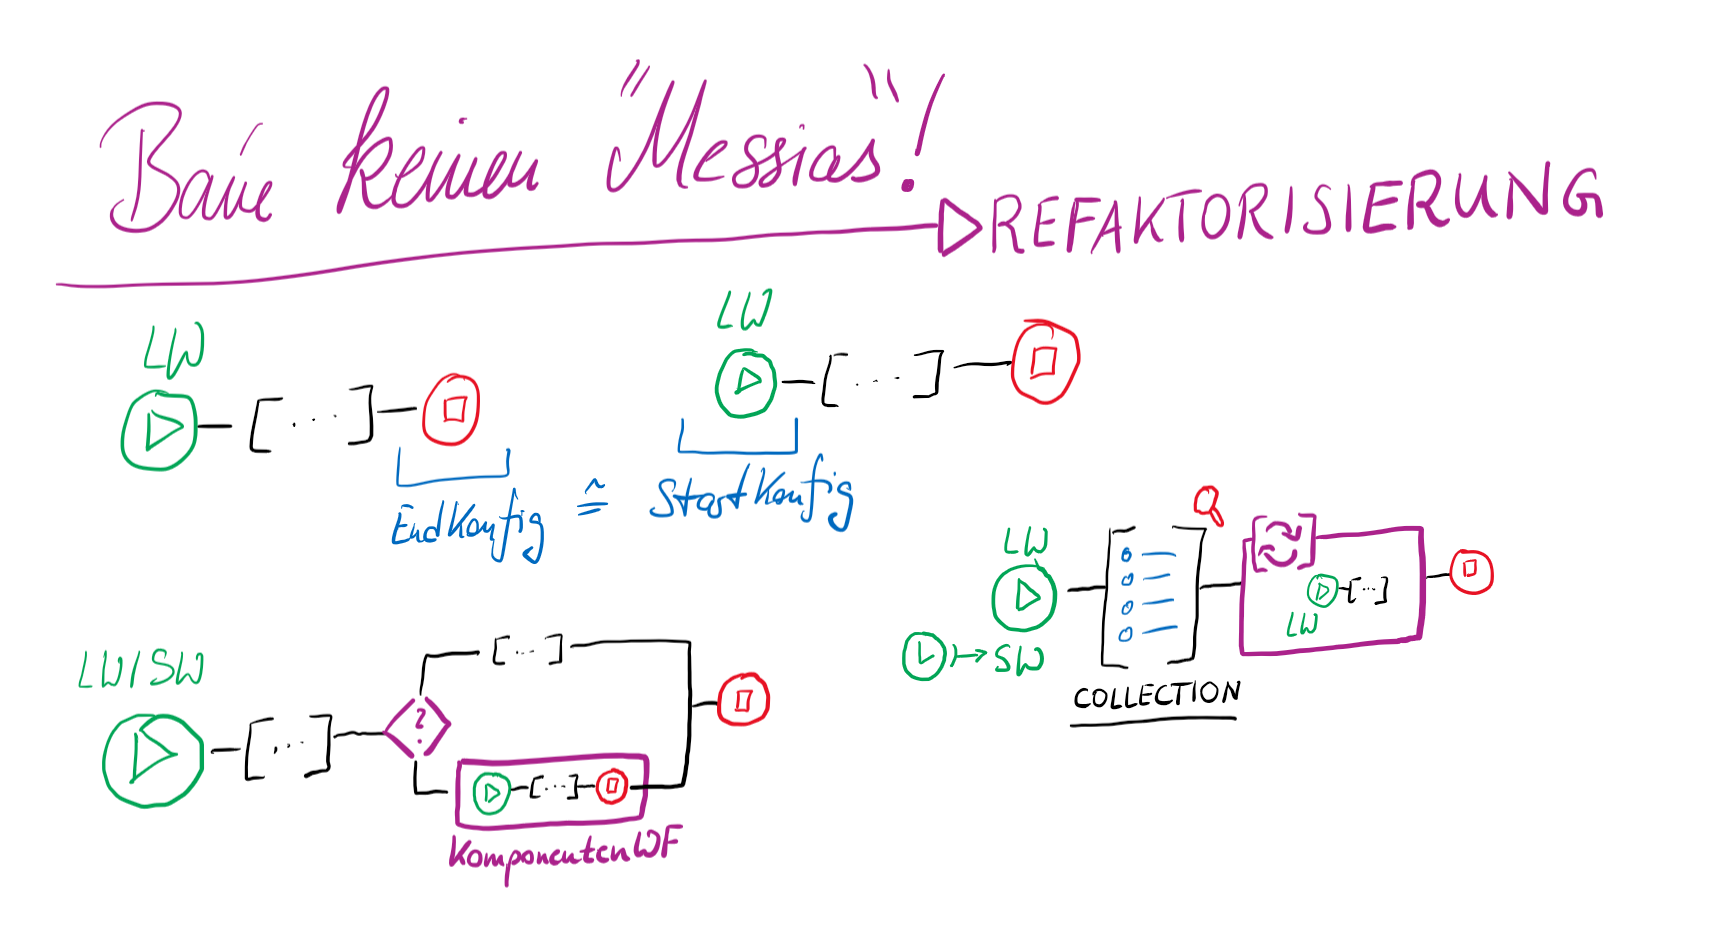 Baue keinen "Messias"!
REFAKTORISIERUNG
LW
[...]
LW
[...]
EndKonfig ≙ StartKonfig
LW
[...]
LW
SW
COLLECTION
LW/SW
[...]
?
[...]
[...]
KomponentenWF